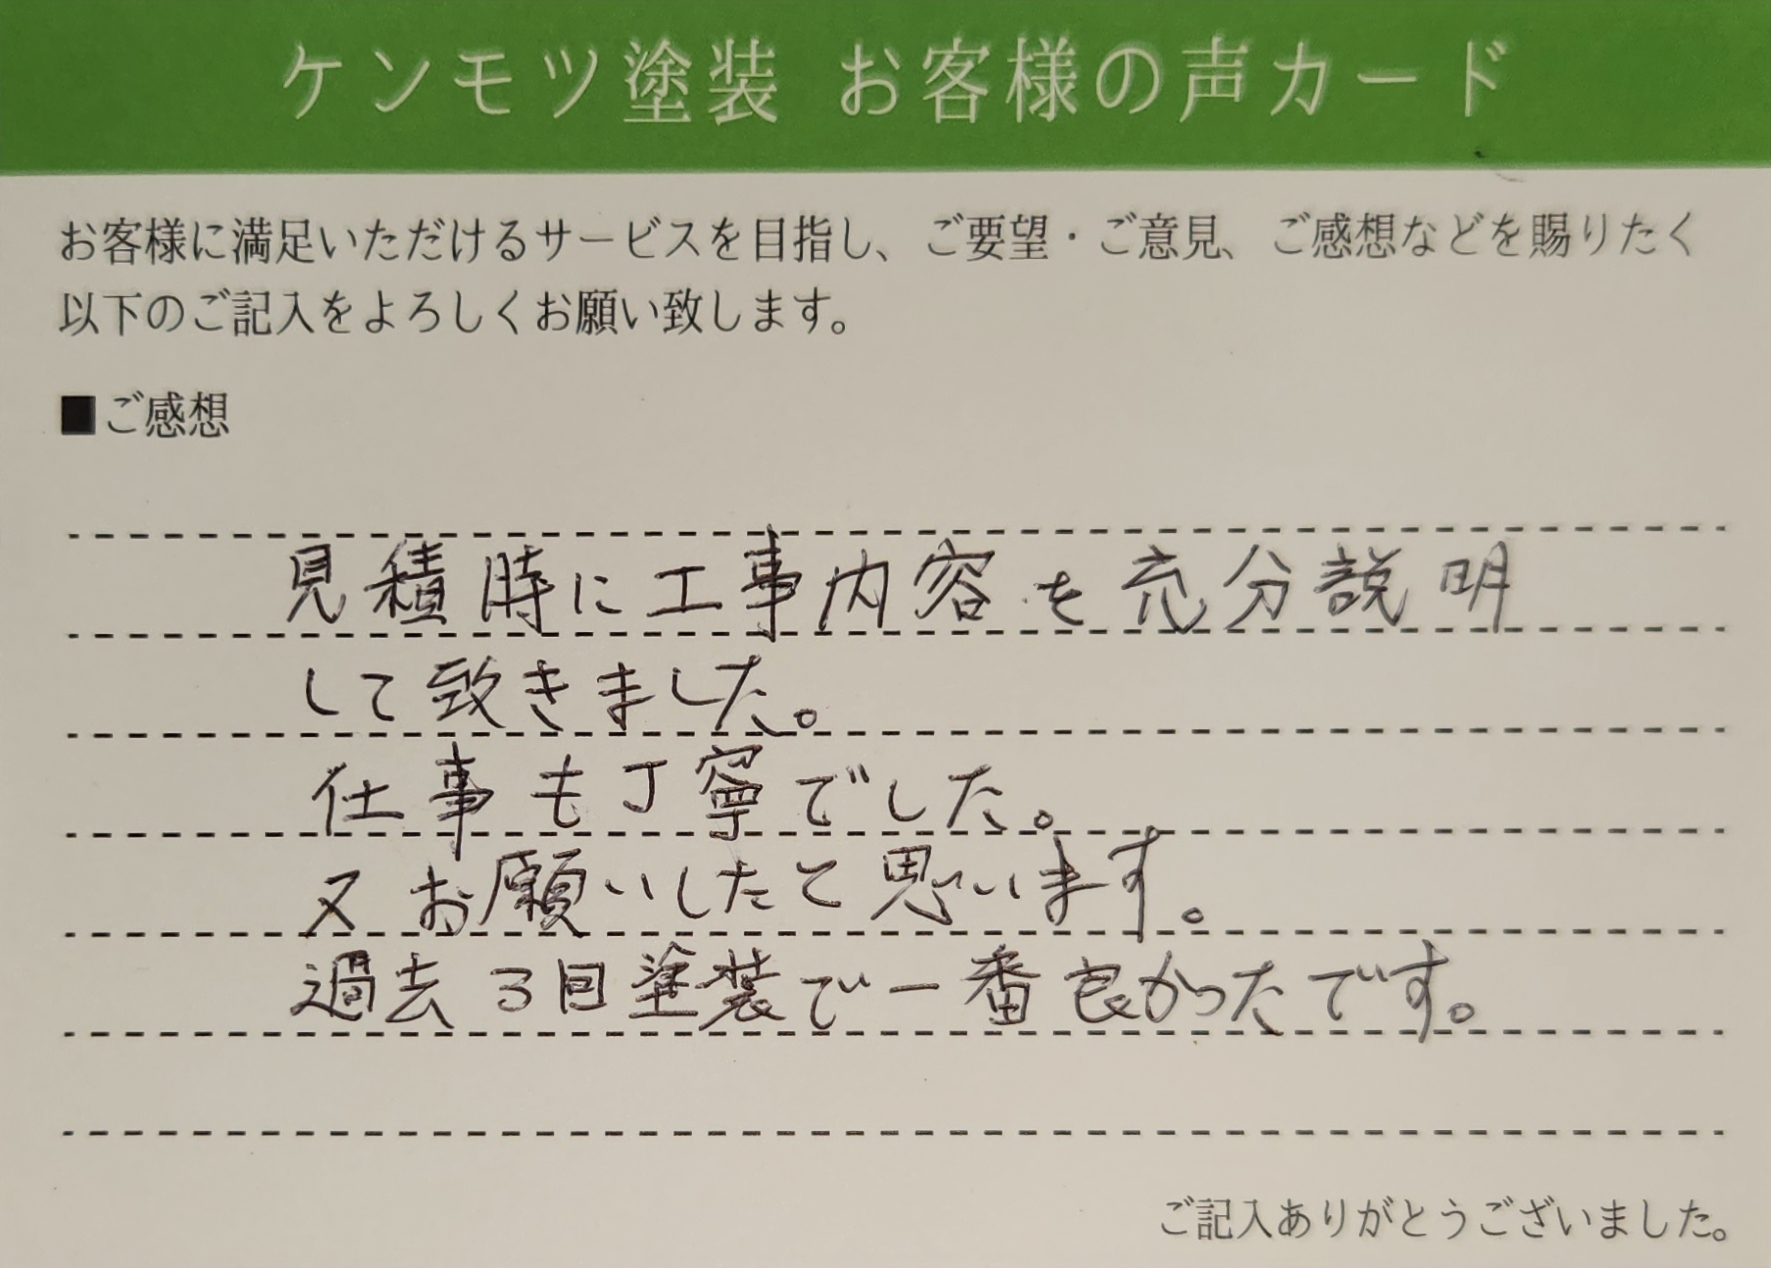 ケンモツ塗装 お客様の声カード
お客様に満足いただけるサービスを目指し、ご要望・ご意見、ご感想などを賜りたく
以下のご記入をよろしくお願い致します。
■ご感想
見積時に工事内容を充分説明
して致きました。
仕事も丁寧でした。
又お願いしたと思います。
過去3回塗装で一番良かったです。
ご記入ありがとうございました。